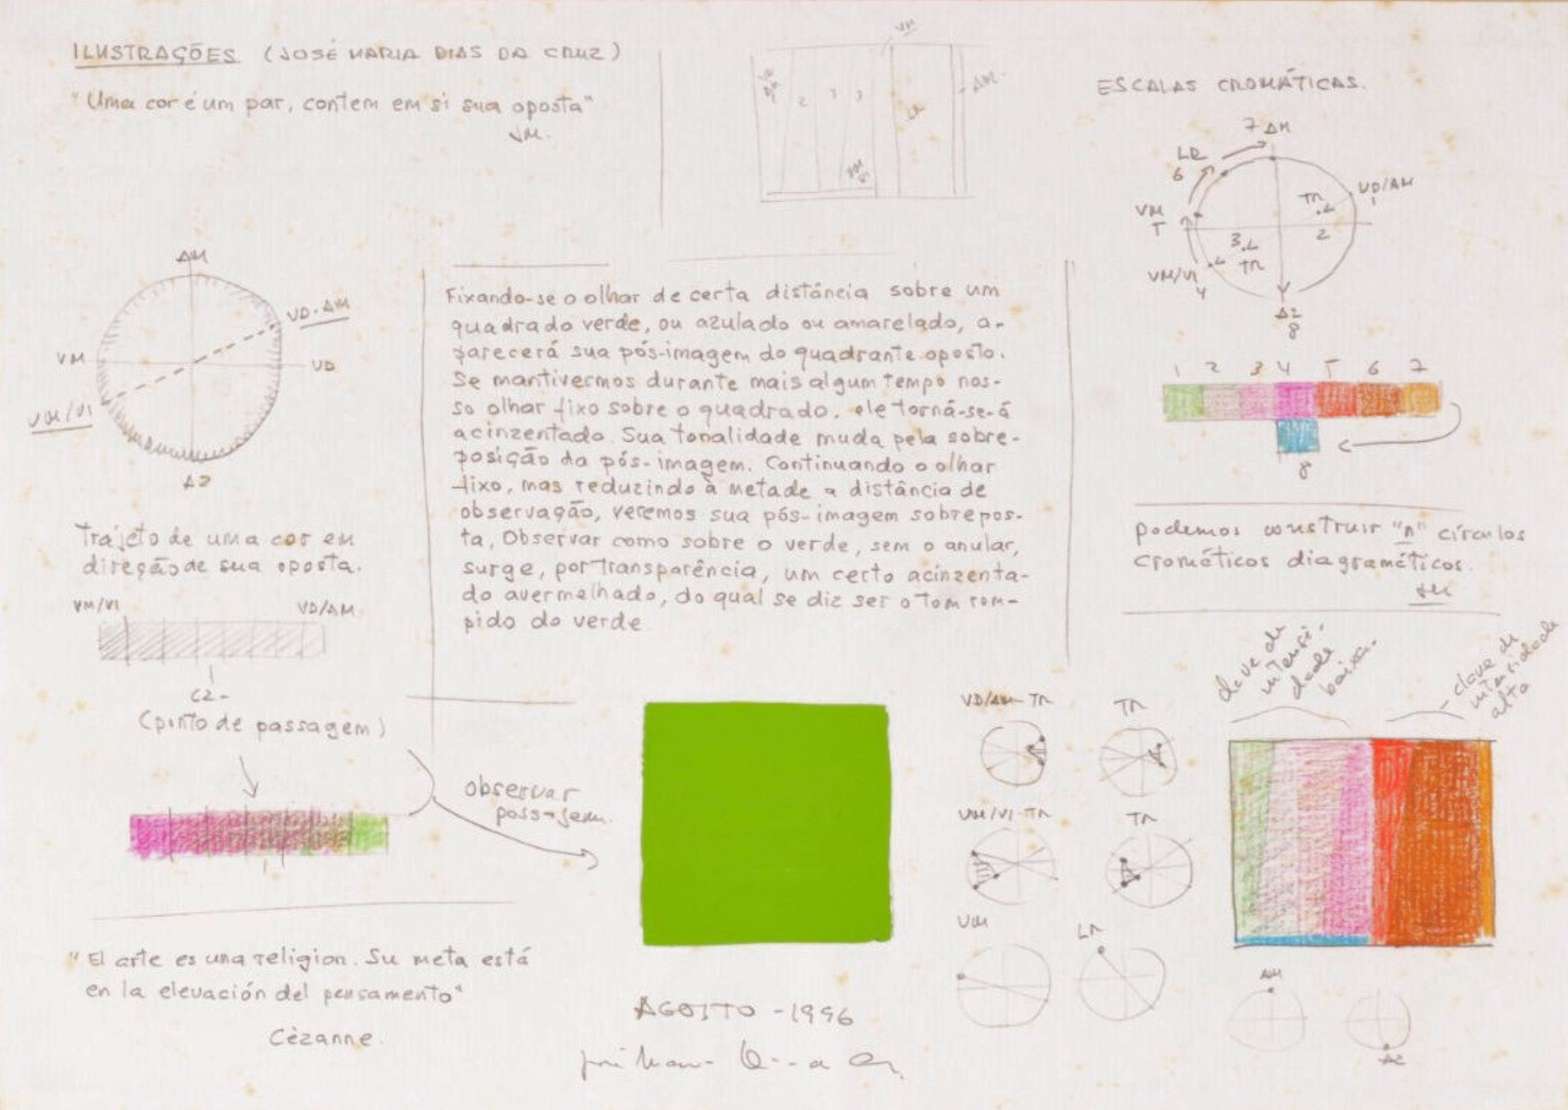 ILUSTRAÇÕES (JOSÉ MARIA DIAS DA CRUZ)
"Uma cor é um par, contem em si sua oposta"
JM.
VM
AM.
2
3
3
LR
ESCALAS CROMÁTICAS.
7 AM
LR
6
VD/AM
1
TR
2
VM
5
3
TR
VM/VI
4
AZ
8
1 2 3 4 5 6 7
8
AM
VD.AM
VM
VD
VM/VI
AZ
Fixando-se o olhar de certa distância sobre um
quadrado verde, ou azulado ou amarelado, a-
parecerá sua pós-imagem do quadrante oposto.
Se mantivermos durante mais algum tempo nos-
so olhar fixo sobre o quadrado, ele torná-se-á
acinzentado. Sua tonalidade muda pela sobre-
posição da pós-imagem. Continuando o olhar
fixo, mas reduzindo à metade a distância de
observação, veremos sua pós-imagem sobrepos-
ta. Observar como sobre o verde, sem o anular,
surge, por transparência, um certo acinzenta-
do avermelhado, do qual se diz ser o tom rom-
pido do verde
Trajeto de uma cor em
direção de sua oposta.
VM/VI
VD/AM
CZ-
(ponto de passagem)
observar
passagem.
podemos construir "n" círculos
cromáticos diagramáticos.
JM
clave de
intensi-
dade
baixa.
clave de
intensidade
alta
VD/AM-TR
TR
VM/VI-TR
TR
VM
LR
AM
AZ
"El arte es una religion. Su meta está
en la elevación del pensamento"
Cèzanne.
AGOSTO - 1996